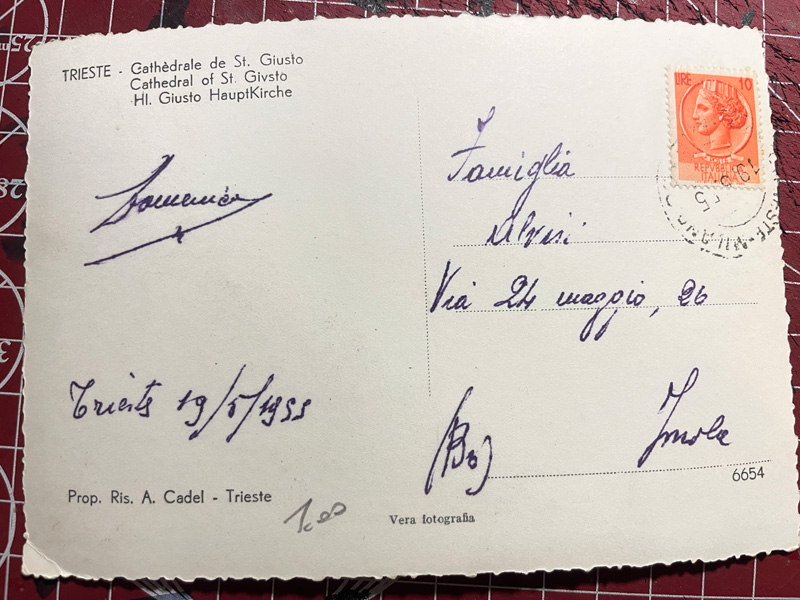 TRIESTE - Cathèdrale de St. Giusto
Cathedral of St. Givsto
Hl. Giusto HauptKirche
LIRE 10
POSTE
REPVBBLICA
ITALIANA
19 5 55
Domenico
Famiglia
Alvisi
Via 24 maggio, 26
Trieste 19/5/1955
(Bo) Imola
6654
Prop. Ris. A. Cadel - Trieste
1.00
Vera fotografia